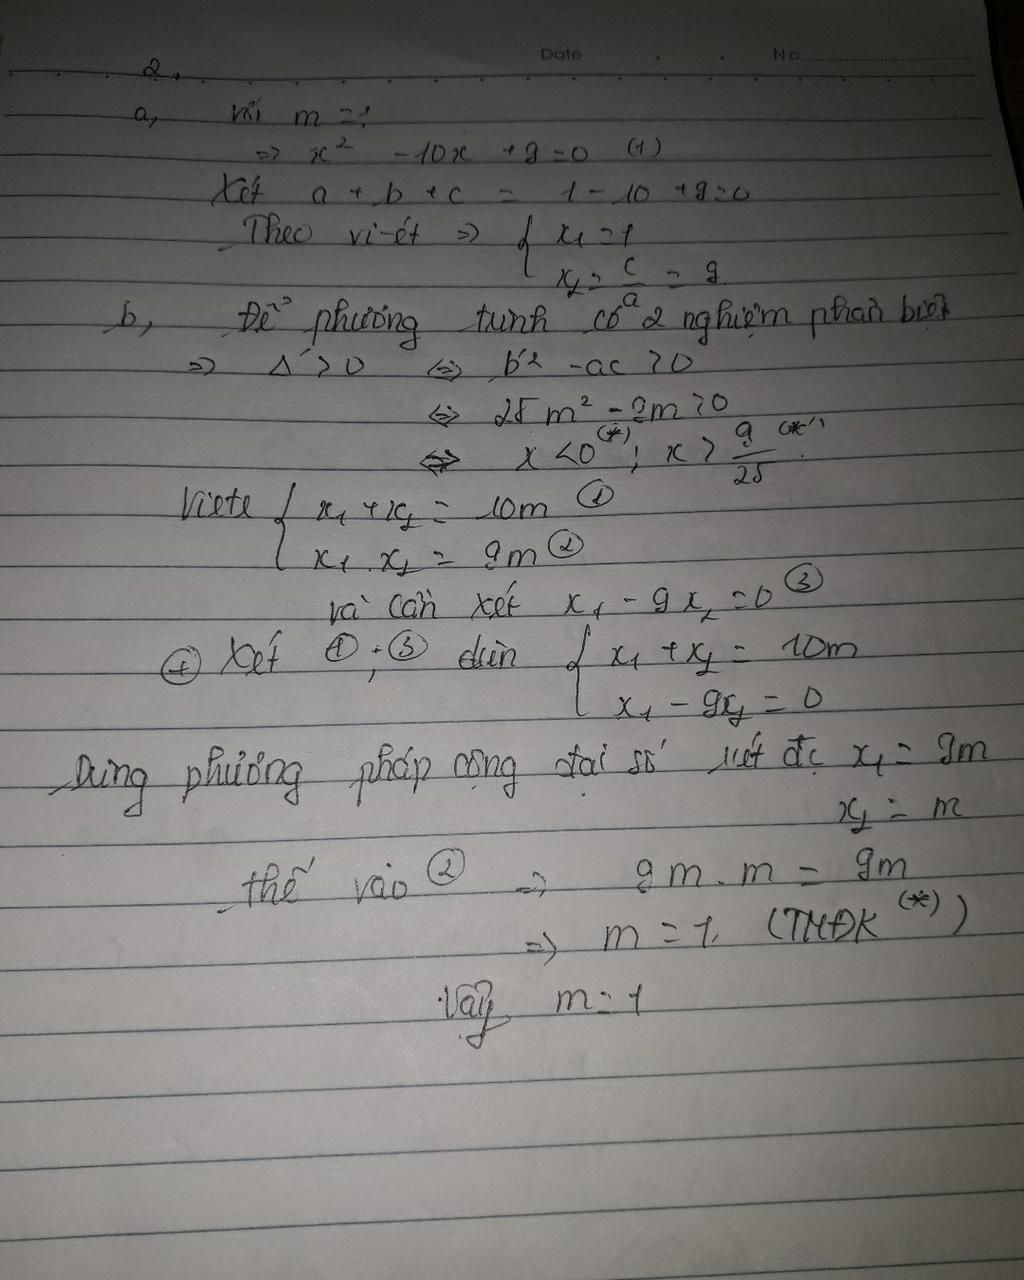 Date No
2,
a, với m = 1
=> x² - 10x + 9 = 0 (1)
Xét a + b + c = 1 - 10 + 9 = 0
Theo vi-ét => { x₁ = 1
x₂ = c/a = 9
b, Để phương trình có 2 nghiệm phân biệt
=> Δ' > 0 <=> b'² - ac > 0
<=> 25m² - 9m > 0
<=> x < 0 (*) ; x > 9/25 (*')
Viete { x₁ + x₂ = 10m ①
x₁ . x₂ = 9m ②
và cần xét x₁ - 9x₂ = 0 ③
⊕ Xét ① ; ③ { x₁ + x₂ = 10m
x₁ - 9x₂ = 0
Dùng phương pháp cộng đại số đc x₁ = 9m
x₂ = m
thế vào ② => 9m . m = 9m
=> m = 1. (TMĐK (*))
Vậy m = 1